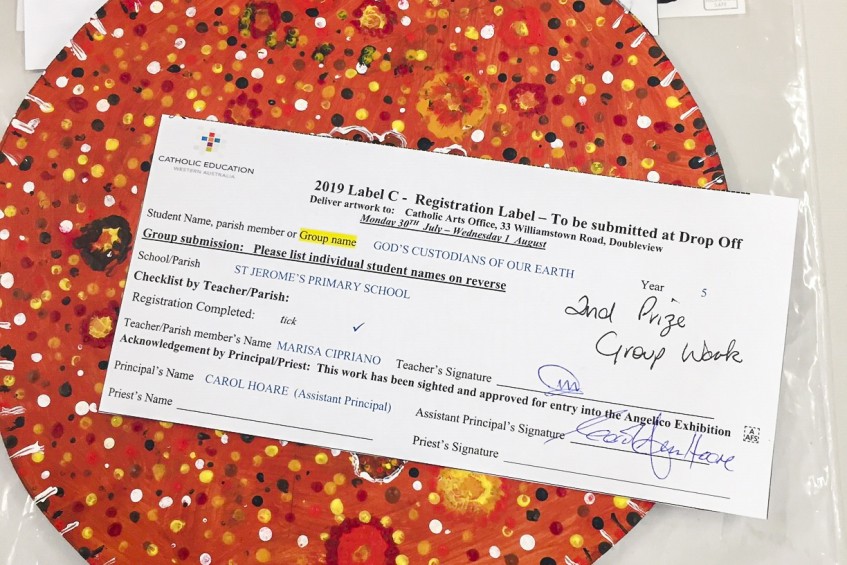 CATHOLIC EDUCATION
WESTERN AUSTRALIA
2019 Label C - Registration Label – To be submitted at Drop Off
Deliver artwork to: Catholic Arts Office, 33 Williamstown Road, Doubleview
Monday 30TH July – Wednesday 1 August
Student Name, parish member or Group name GOD'S CUSTODIANS OF OUR EARTH
Group submission: Please list individual student names on reverse Year 5
School/Parish ST JEROME'S PRIMARY SCHOOL
2nd Prize
Group Work
Checklist by Teacher/Parish:
Registration Completed: tick ✓
Teacher/Parish member's Name MARISA CIPRIANO Teacher's Signature
Acknowledgement by Principal/Priest: This work has been sighted and approved for entry into the Angelico Exhibition
Principal's Name CAROL HOARE (Assistant Principal) Assistant Principal's Signature
Priest's Name Priest's Signature
A
AFS